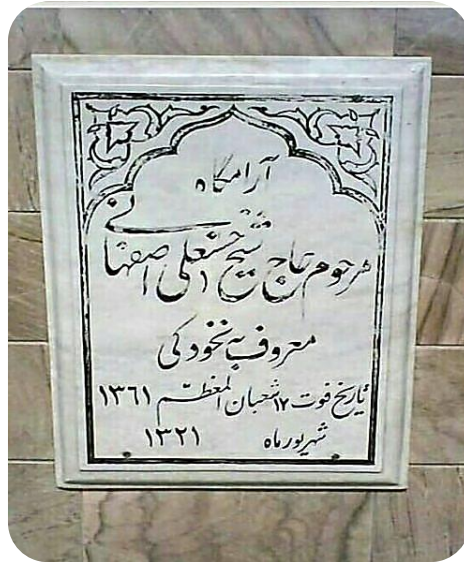 آرامگاه
مرحوم حاج شیخ حسنعلی اصفهانی
معروف به نخودکی
تاریخ فوت ۱۷ شعبان المعظم ۱۳۶۱
شهریور ماه ۱۳۲۱